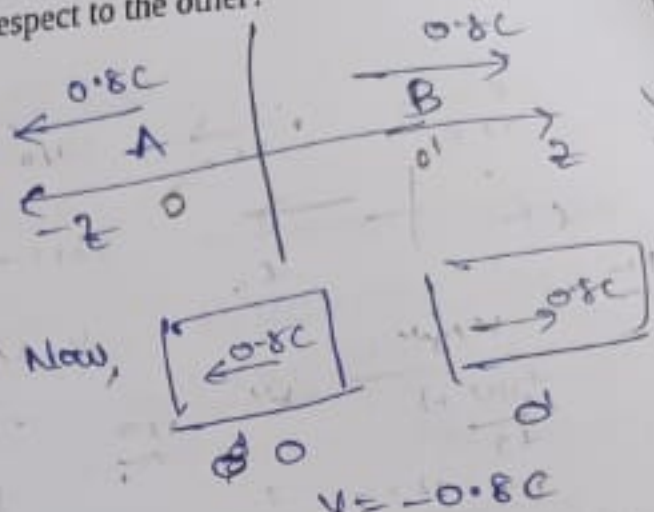 espect to the other?
0.8C
0.8C
A
B
-Z
O
O'
Z
Now,
0.8C
0.8C
O
O'
V = -0.8C